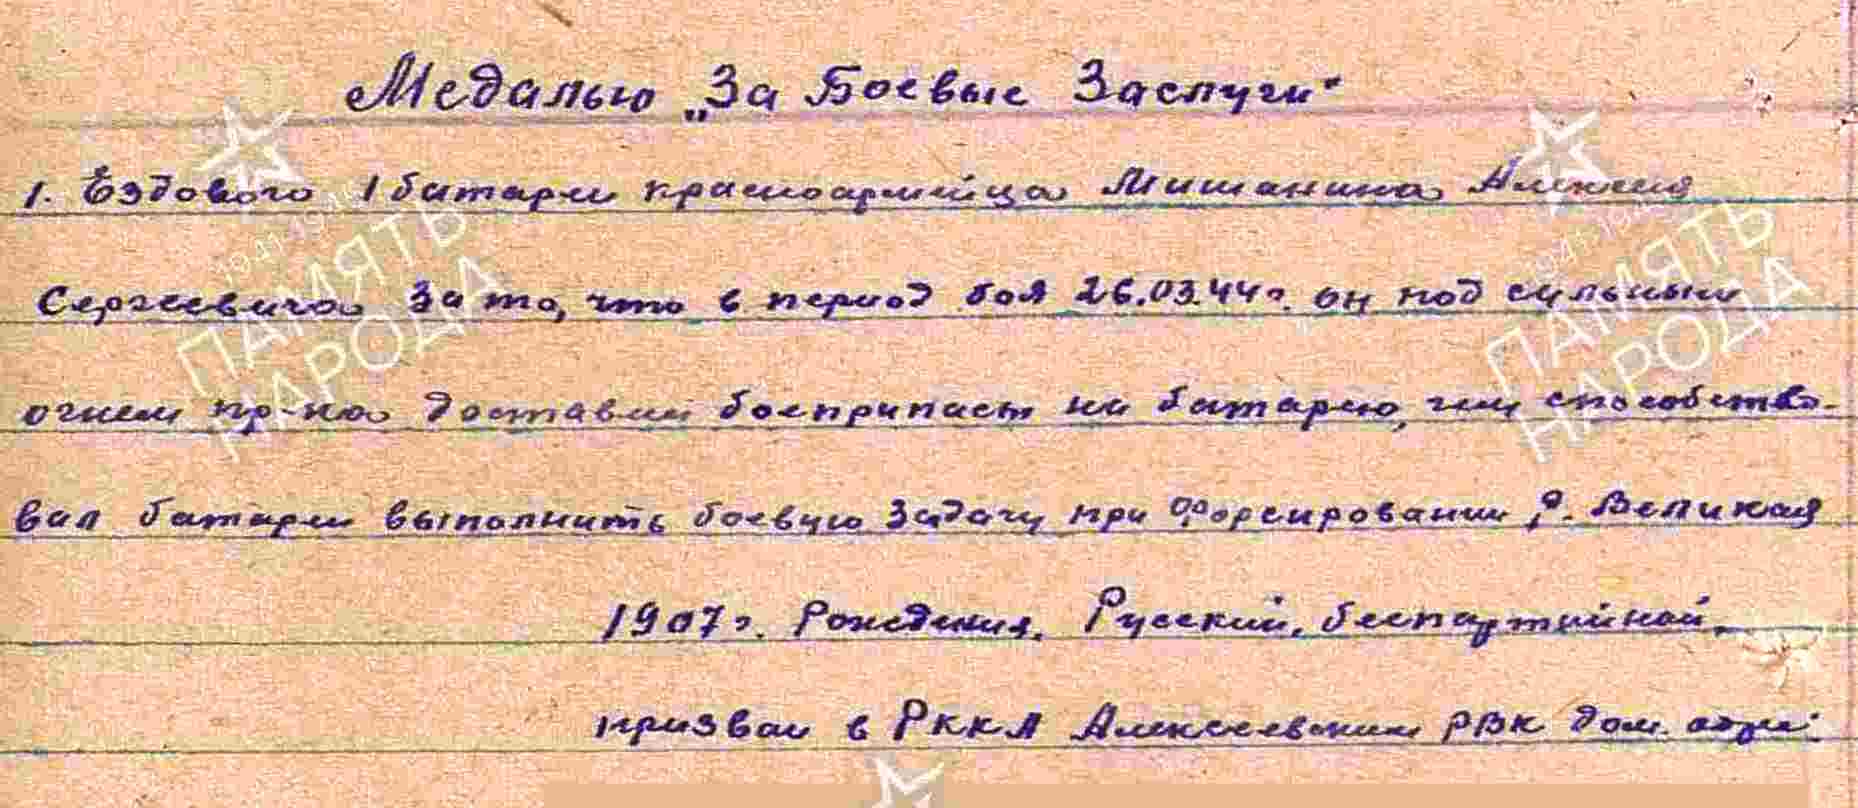 Медалью „За Боевые Заслуги"
1. Ездового 1 батареи красноармейца Мишанина Алексея
Сергеевича За то, что в период боя 26.03.44г. он под сильным
огнем пр-ка доставлял боеприпасы на батарею, чем способство-
вал батареи выполнить боевую задачу при форсировании р. Великая
1907 г. Рождения, Русский, беспартийной,
призван в РККА Алексеевским РВК Дом. адрес:
1941-1945
ПАМЯТЬ
НАРОДА
1941-1945
ПАМЯТЬ
НАРОДА